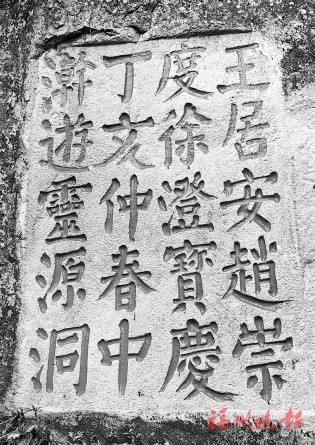 王居安趙崇
度徐澄寶慶
丁亥仲春中
澣遊靈源洞
福州晚报